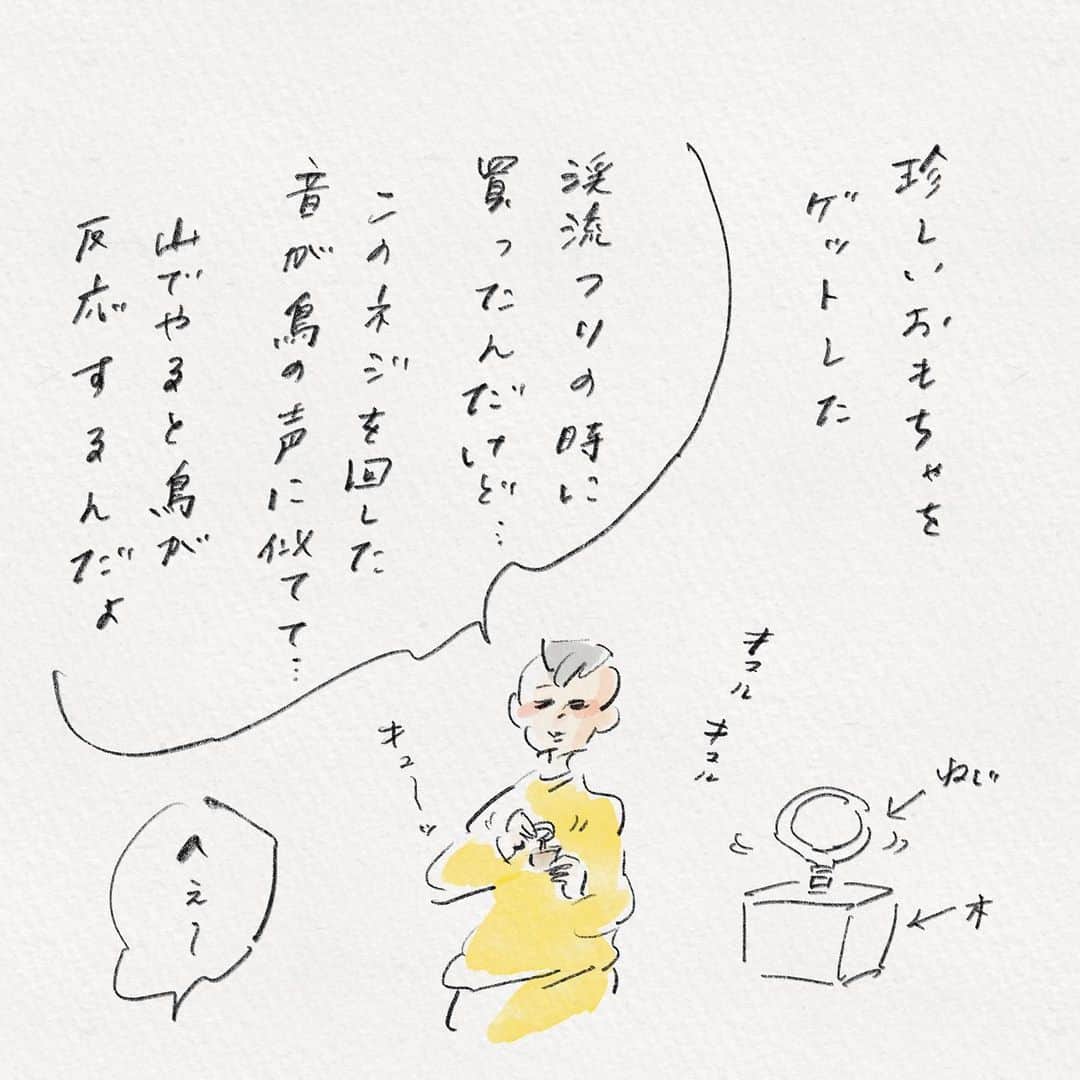 珍しいおもちゃを
ゲットした
渓流つりの時に
買ったんだけど…
このネジを回した
音が鳥の声に似てて…
山でやると鳥が
反応するんだよ
キュル
キュル
ねじ
木
キュ〜ッ
へぇ〜